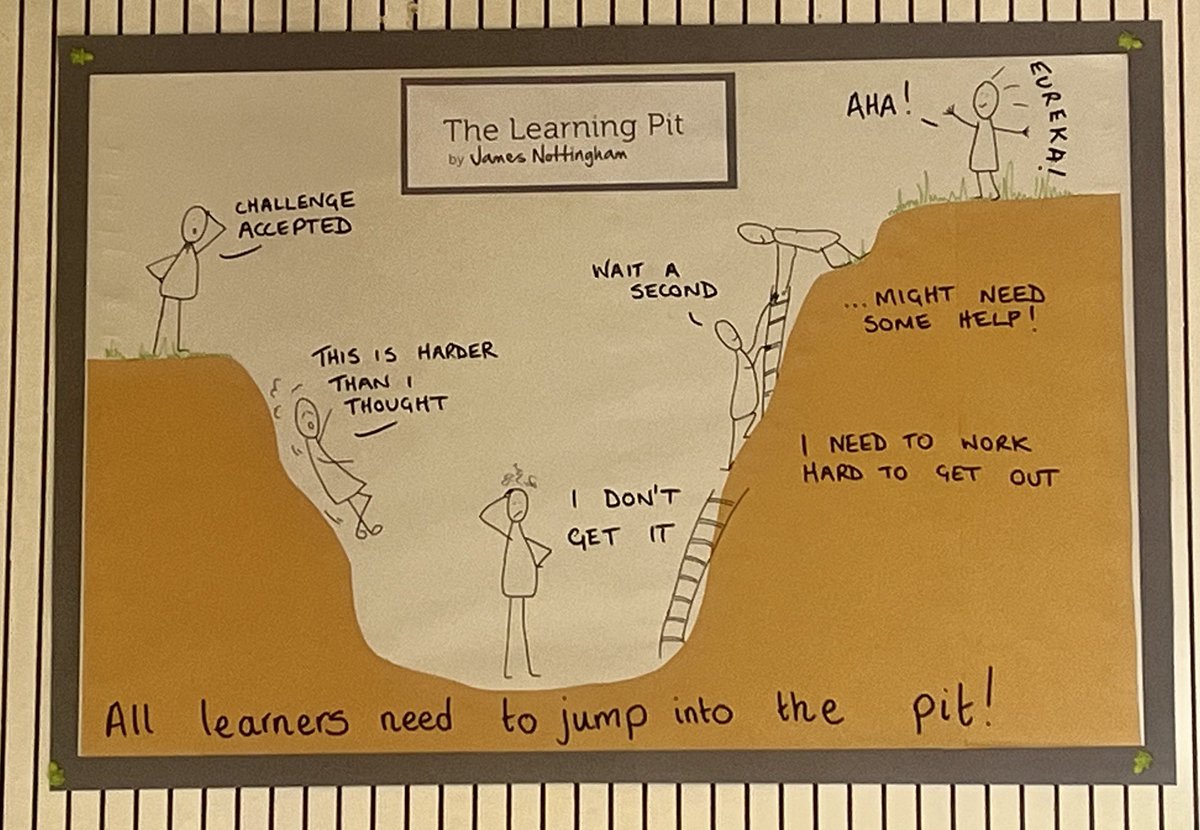 The Learning Pit
by James Nottingham
AHA!
EUREKA!
CHALLENGE
ACCEPTED
THIS IS HARDER
THAN I
THOUGHT
I DON'T
GET IT
WAIT A
SECOND
...MIGHT NEED
SOME HELP!
I NEED TO WORK
HARD TO GET OUT
All learners need to jump into the pit!